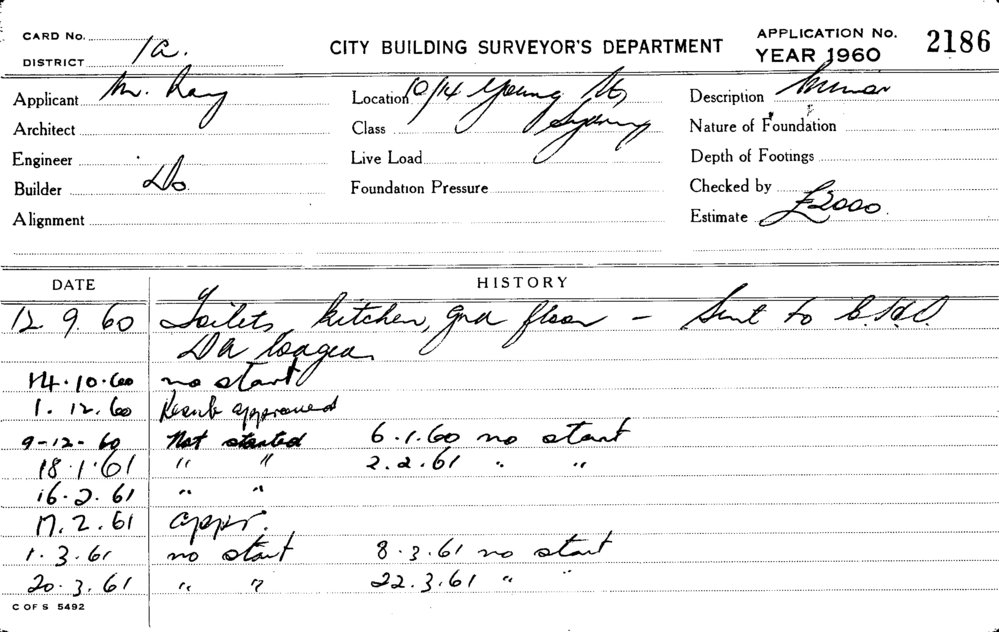 CARD No.
DISTRICT 1a.
CITY BUILDING SURVEYOR'S DEPARTMENT
APPLICATION No. 2186
YEAR 1960
Applicant Mr.
Location 10/14 Young St, Sydney
Description Minor
Architect
Class
Nature of Foundation
Engineer
Live Load
Depth of Footings
Builder Do
Foundation Pressure
Checked by
Alignment
Estimate £2000
DATE HISTORY
12 9. 60 Toilets, kitchen, gnd floor - Sent to
DA lodged
14.10.60 no start
1. 12. 60 approved
9-12-60 Not started 6.1.60 no start
18.1.61 " " 2.2.61 " "
16.2.61 " "
17.2.61 appr.
1.3.61 no start 8.3.61 no start
20.3.61 " " 22.3.61 " "
C OF S 5492